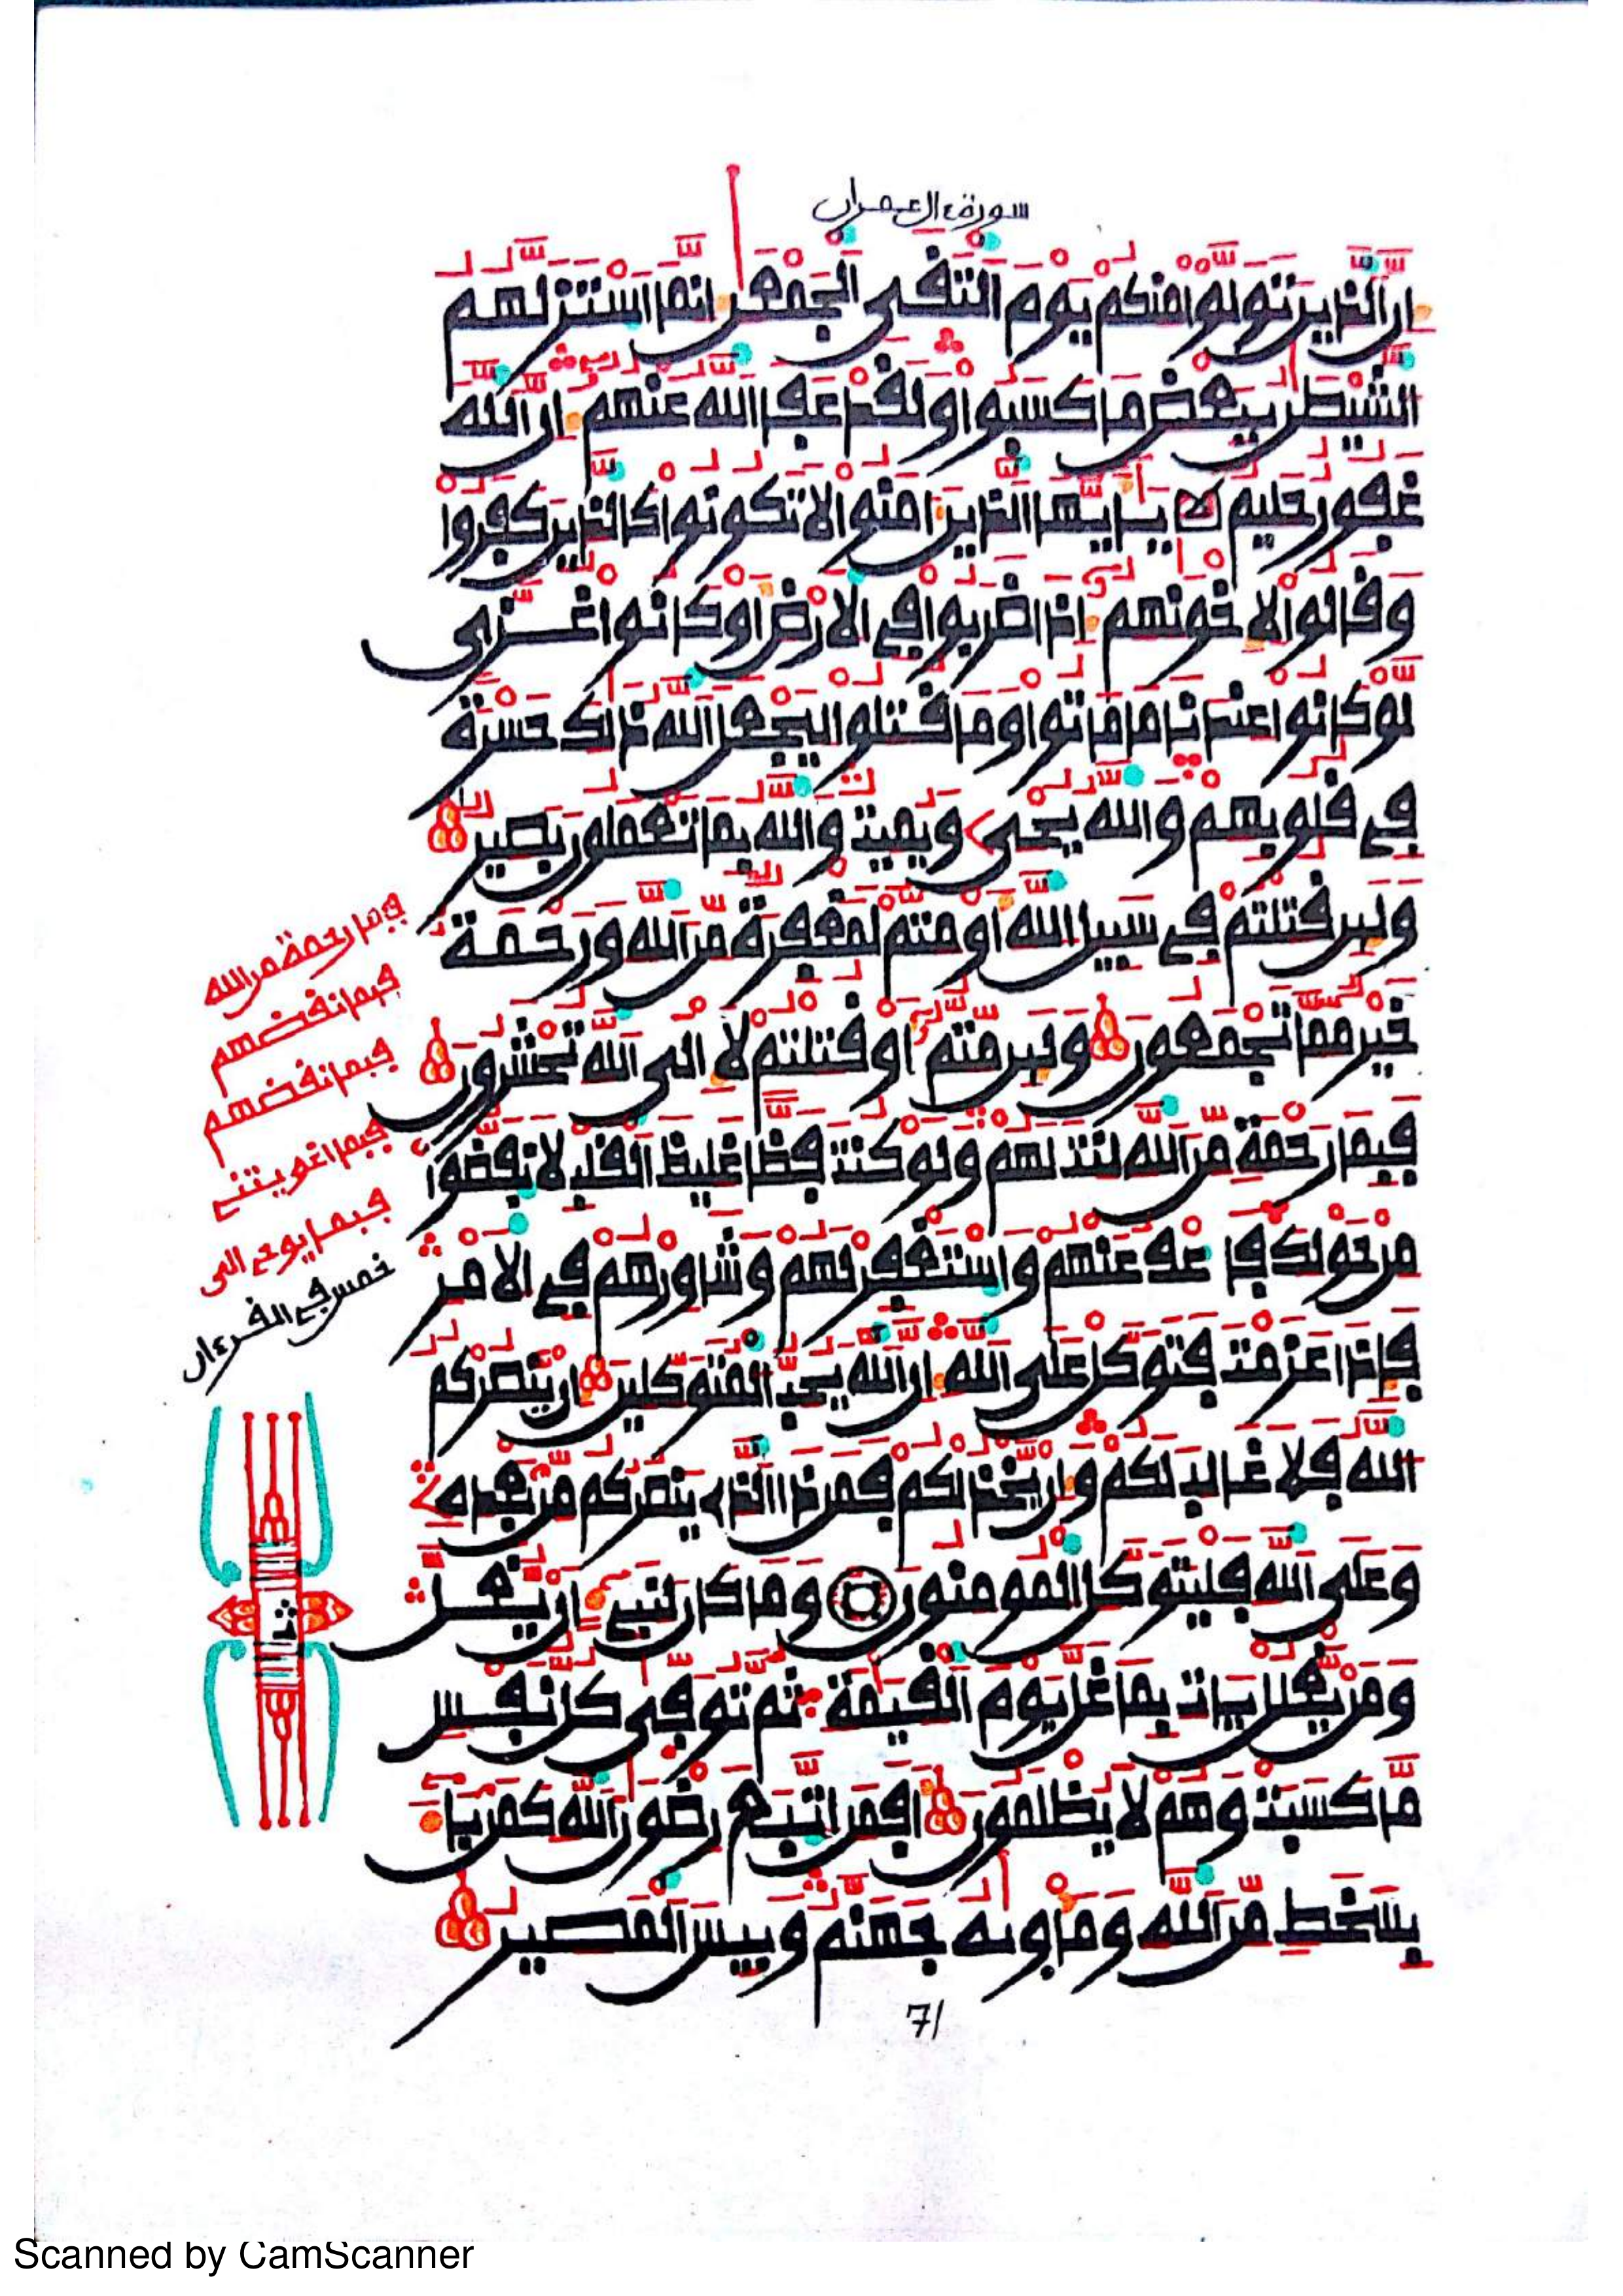 سورة ءال عمران
ان الذين تولوا منكم يوم التقى الجمعن انما استزلهم
الشيطن ببعض ما كسبوا ولقد عفا الله عنهم ان الله
غفور حليم يايها الذين امنوا لا تكونوا كالذين كفروا
وقالوا لاخونهم اذا ضربوا في الارض او كانوا غزى
لو كانوا عندنا ما ماتوا وما قتلوا ليجعل الله ذلك حسرة
في قلوبهم والله يحي ويميت والله بما تعملون بصير
ولين قتلتم في سبيل الله او متم لمغفرة من الله ورحمة
خير مما تجمعون ولين متم او قتلتم لالى الله تحشرون
فبما رحمة من الله لنت لهم ولو كنت فظا غليظ القلب لانفضوا
من حولك فاعف عنهم واستغفر لهم وشاورهم في الامر
فاذا عزمت فتوكل على الله ان الله يحب المتوكلين ان ينصركم
الله فلا غالب لكم وان يخذلكم فمن ذا الذي ينصركم من بعده
وعلى الله فليتوكل المومنون وما كان لنبي ان يغل
ومن يغلل يات بما غل يوم القيمة ثم توفى كل نفس
ما كسبت وهم لا يظلمون افمن اتبع رضون الله كمن با
بسخط من الله وماويه جهنم وبيس المصير
فبما رحمة من الله
فبما نقضهم
فبما نقضهم
فبما اغويتني
فبما يوحي الى
خمس في القرءان
71
Scanned by CamScanner